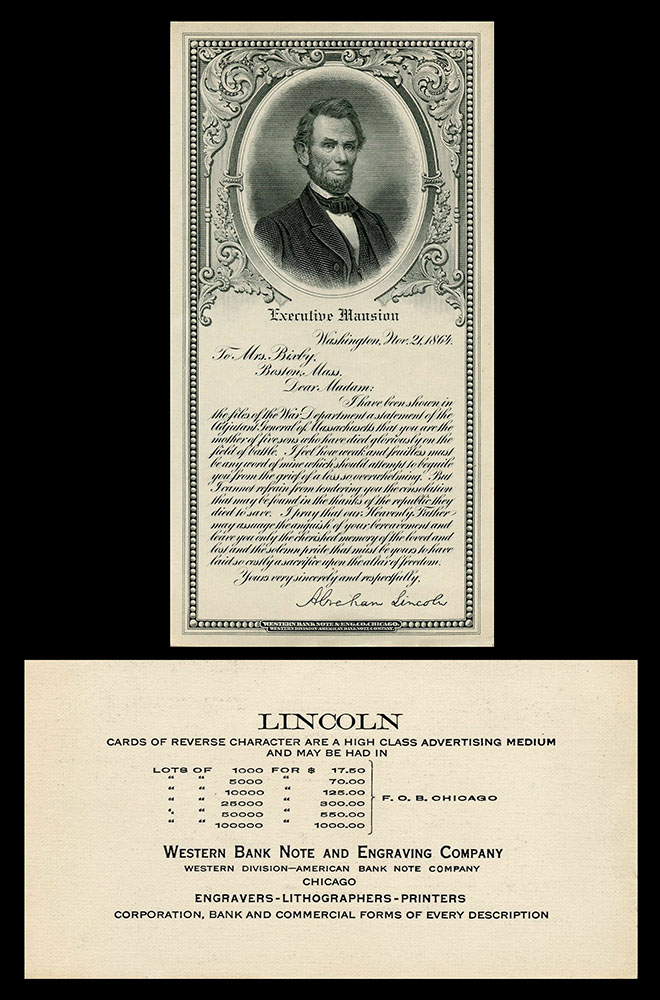 Executive Mansion
Washington, Nov. 21, 1864.
To Mrs. Bixby,
Boston, Mass.
Dear Madam:
I have been shown in
the files of the War Department a statement of the
Adjutant General of Massachusetts that you are the
mother of five sons who have died gloriously on the
field of battle. I feel how weak and fruitless must
be any word of mine which should attempt to beguile
you from the grief of a loss so overwhelming. But
I cannot refrain from tendering you the consolation
that may be found in the thanks of the republic they
died to save. I pray that our Heavenly Father
may assuage the anguish of your bereavement and
leave you only the cherished memory of the loved and
lost and the solemn pride that must be yours to have
laid so costly a sacrifice upon the altar of freedom.
Yours very sincerely and respectfully,
Abraham Lincoln
WESTERN BANK NOTE & ENG. CO. CHICAGO.
WESTERN DIVISION AMERICAN BANK NOTE COMPANY.
LINCOLN
CARDS OF REVERSE CHARACTER ARE A HIGH CLASS ADVERTISING MEDIUM
AND MAY BE HAD IN
LOTS OF 1000 FOR $ 17.50
" " 5000 " 70.00
" " 10000 " 125.00
" " 25000 " 300.00
" " 50000 " 550.00
" " 100000 " 1000.00
F. O. B. CHICAGO
WESTERN BANK NOTE AND ENGRAVING COMPANY
WESTERN DIVISION—AMERICAN BANK NOTE COMPANY
CHICAGO
ENGRAVERS-LITHOGRAPHERS-PRINTERS
CORPORATION, BANK AND COMMERCIAL FORMS OF EVERY DESCRIPTION